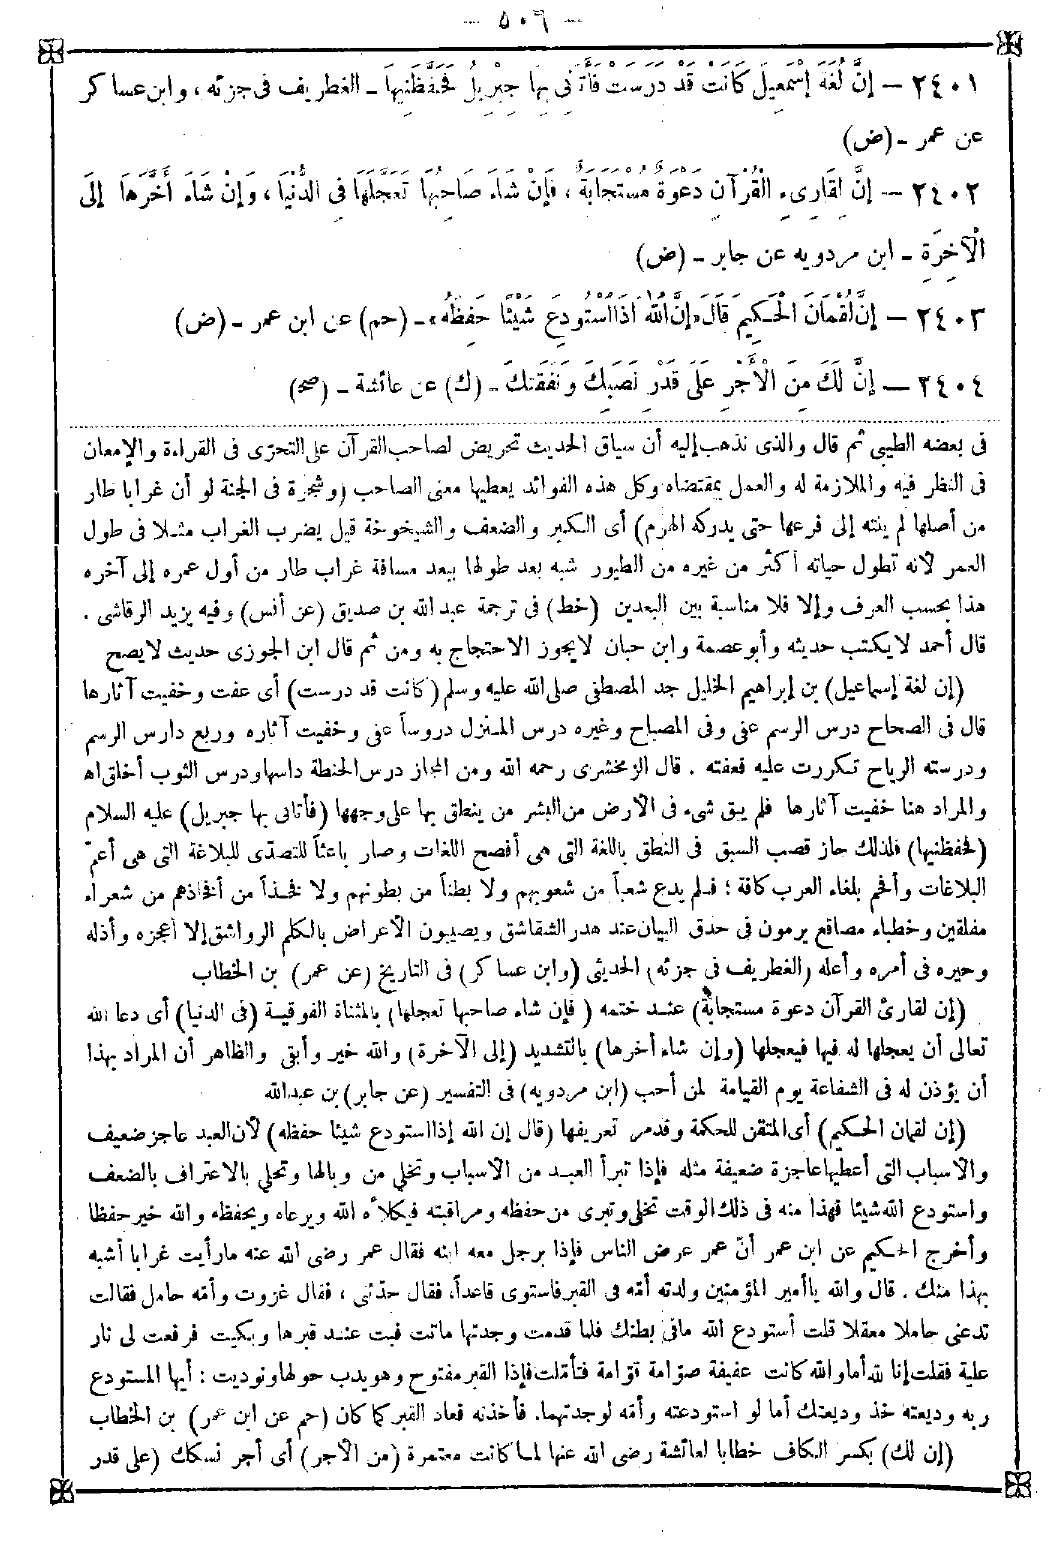 — ٥٠٦ —
٢٤٠١ — إِنَّ لُغَةَ إِسْمَعِيلَ كَانَتْ قَدْ دَرَسَتْ فَأَتَانِى بِهَا جِبْرِيلُ فَحَفَّظَنِيهَا ـ الغطريف فى جزئه ، وابن عساكر
عن عمر ـ (ض)
٢٤٠٢ — إِنَّ لِقَارِىءِ الْقُرْآنِ دَعْوَةً مُسْتَجَابَةً ، فَإِنْ شَاءَ صَاحِبُهَا تَعَجَّلَهَا فِى الدُّنْيَا ، وَإِنْ شَاءَ أَخَّرَهَا إِلَى
الْآخِرَةِ ـ ابن مردويه عن جابر ـ (ض)
٢٤٠٣ — إِنَّ لُقْمَانَ الْحَكِيمَ قَالَ «إِنَّ اللهَ إِذَا اسْتُودِعَ شَيْئًا حَفِظَهُ» ـ (حم) عن ابن عمر ـ (ض)
٢٤٠٤ — إِنَّ لَكَ مِنَ الْأَجْرِ عَلَى قَدْرِ نَصَبِكِ وَنَفَقَتِكِ ـ (ك) عن عائشة ـ (صح)
فى بعضه الطيبى ثم قال والذى نذهب إليه أن سياق الحديث تحريض لصاحب القرآن على التحرّى فى القراءة والإمعان
فى النظر فيه والملازمة له والعمل بمقتضاه وكل هذه الفوائد يعطيها معنى الصاحب (وشجرة فى الجنة لو أن غرابا طار
من أصلها لم ينته إلى فرعها حتى يدركه الهرم) أى الكبر والضعف والشيخوخة قيل يضرب الغراب مثلا فى طول
العمر لأنه تطول حياته أكثر من غيره من الطيور شبه بعد طولها ببعد مسافة غراب طار من أول عمره إلى آخره
هذا بحسب العرف وإلا فلا مناسبة بين البعدين (خط) فى ترجمة عبد الله بن صديق (عن أنس) وفيه يزيد الرقاشى .
قال أحمد لا يكتب حديثه وأبو عصمة وابن حبان لا يجوز الاحتجاج به ومن ثم قال ابن الجوزى حديث لا يصح
(إن لغة إسماعيل) بن إبراهيم الخليل جد المصطفى صلى الله عليه وسلم (كانت قد درست) أى عفت وخفيت آثارها
قال فى الصحاح درس الرسم عفى وفى المصباح وغيره درس المنزل دروساً عفى وخفيت آثاره وربع دارس الرسم
ودرسته الرياح تكررت عليه فعفته . قال الزمخشرى رحمه الله ومن المجاز درس الحنطة داسها ودرس الثوب أخلق اه
والمراد هنا خفيت آثارها فلم يبق شىء فى الأرض من البشر من ينطق بها على وجهها (فأتانى بها جبريل) عليه السلام
(فحفظنيها) فلذلك حاز قصب السبق فى النطق باللغة التى هى أفصح اللغات وصار باعثاً للتصدّى للبلاغة التى هى أعمّ
البلاغات وأفحم بلغاء العرب كافة ؛ فلم يدع شعباً من شعوبهم ولا بطناً من بطونهم ولا فخذاً من أفخاذهم من شعراء
مفلقين وخطباء مصاقع يرمون فى حدق البيان عند هدر الشقاشق ويصيبون الأعراض بالكلم الرواشق إلا أعجزه وأذله
وحيره فى أمره وأعله (الغطريف فى جزئه) الحديثى (وابن عساكر) فى التاريخ (عن عمر) بن الخطاب
(إن لقارئ القرآن دعوة مستجابة) عند ختمه (فإن شاء صاحبها تعجلها) بالمثناة الفوقية (فى الدنيا) أى دعا الله
تعالى أن يعجلها له فيها فيعجلها (وإن شاء أخرها) بالتشديد (إلى الآخرة) والله خير وأبقى والظاهر أن المراد بهذا
أن يؤذن له فى الشفاعة يوم القيامة لمن أحب (ابن مردويه) فى التفسير (عن جابر) بن عبد الله
(إن لقمان الحكيم) أى المتقن للحكمة وقد مر تعريفها (قال إن الله إذا استودع شيئا حفظه) لأن العبد عاجز ضعيف
والأسباب التى أعطيها عاجزة ضعيفة مثله فإذا تبرأ العبد من الأسباب وتخلى من وبالها وتحلى بالاعتراف بالضعف
واستودع الله شيئا فهذا منه فى ذلك الوقت تخلى وتبرى من حفظه ومراقبته فيكلأه الله ويرعاه ويحفظه والله خير حفظا
وأخرج الحكيم عن ابن عمر أنّ عمر عرض الناس فإذا برجل معه ابنه فقال عمر رضى الله عنه ما رأيت غرابا أشبه
بهذا منك . قال والله يا أمير المؤمنين ولدته أمّه فى القبر فاستوى قاعداً، فقال حدّثنى ، فقال غزوت وأمّه حامل فقالت
تدعنى حاملا معقلا قلت أستودع الله ما فى بطنك فلما قدمت وجدتها ماتت فبت عند قبرها وبكيت فرفعت لى نار
علية فقلت إنا لله أما والله كانت عفيفة صوّامة قوّامة فتأمّلت فإذا القبر مفتوح وهو يدب حولها ونوديت : أيها المستودع
ربه وديعته خذ وديعتك أما لو استودعته وأمّه لوجدتهما. فأخذته فعاد القبر كما كان (حم عن ابن عمر) بن الخطاب
(إن لك) بكسر الكاف خطابا لعائشة رضى الله عنها لما كانت معتمرة (من الأجر) أى أجر نسكك (على قدر